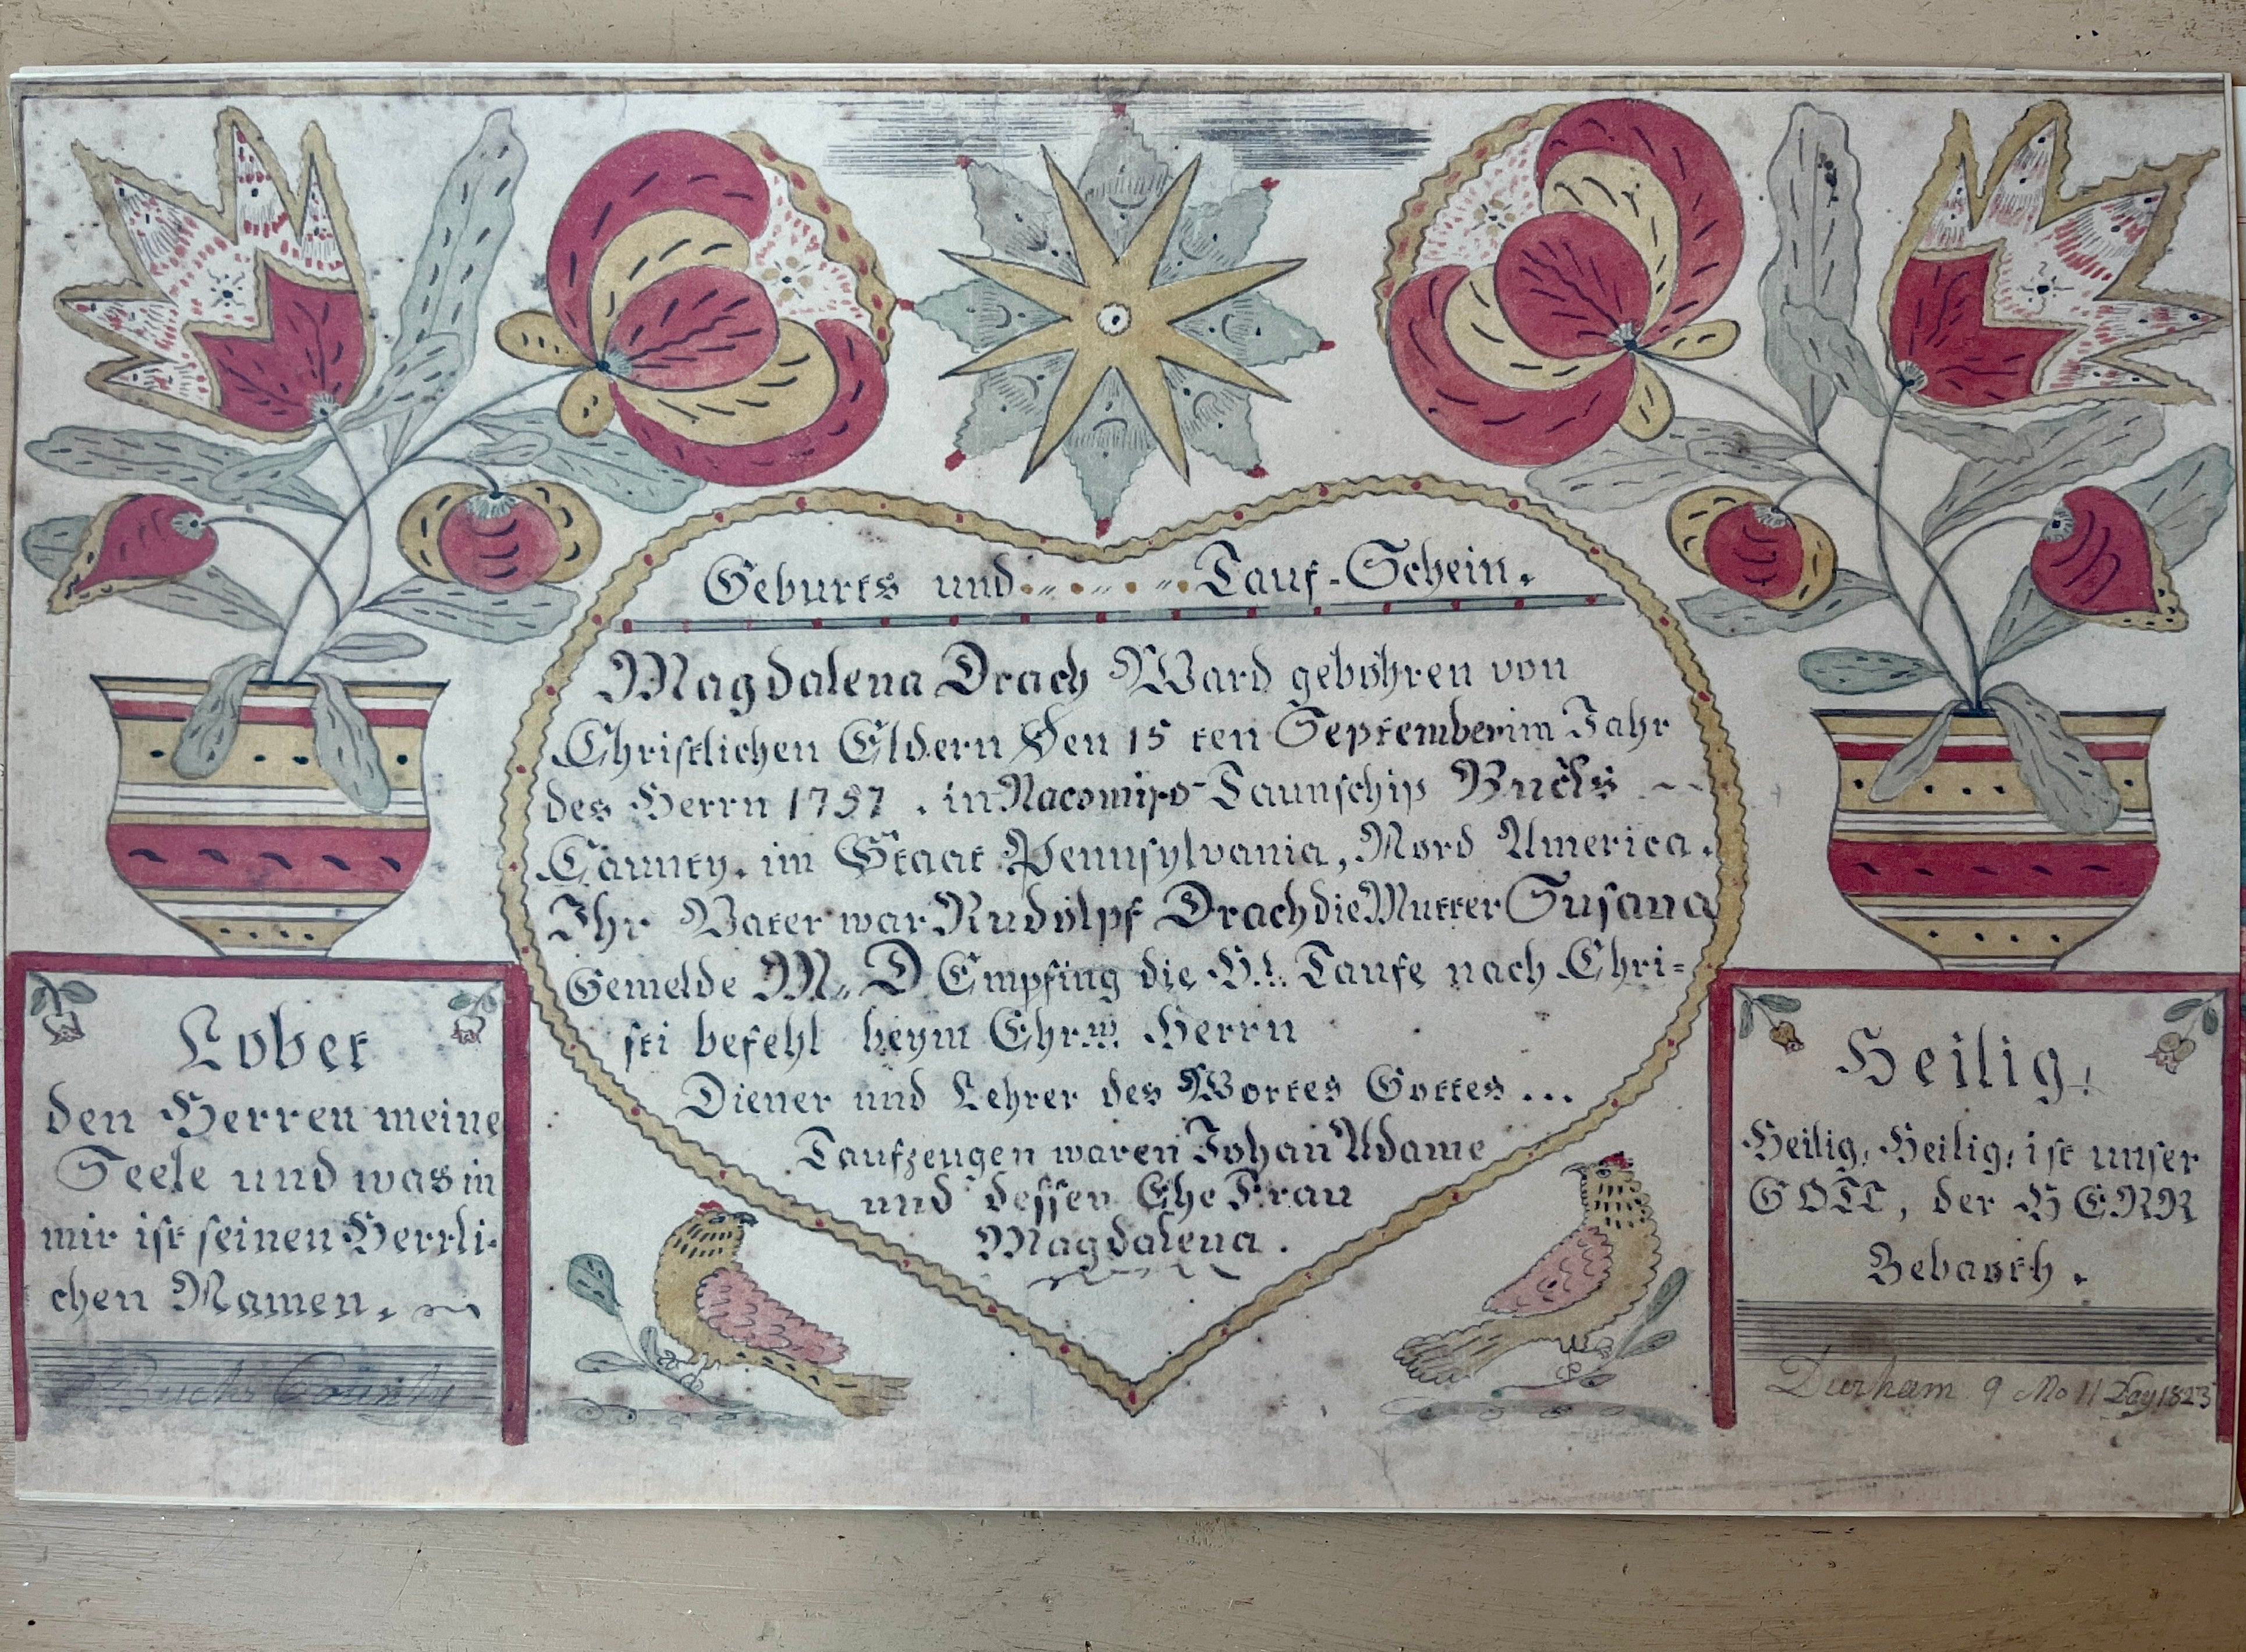 Geburts und Tauf-Schein.
Magdalena Drach Ward gebohren von
Christlichen Eldern Den 15 ten September im Jahr
des Herrn 1757. in Nacomixo Taunschip Bucks
Caunty. im Staat Pennsylvania, Nord America.
Ihr Vater war Rudolpf Drach die Mutter Susana
Gemelde M. D Empfing die H.l. Taufe nach Chri=
sti befehl beym Ehr.w. Herrn
Diener und Lehrer des Wortes Gottes...
Taufzeugen waren Johan Adame
und dessen Ehe Frau
Magdalena.
Lobet
den Herren meine
Seele und was in
mir ist seinen Herrli-
chen Namen.
Bucks County
Heilig,
Heilig, Heilig, ist unser
GOTT, der HERR
Zebaoth.
Durham 9 Mo 11 Day 1823